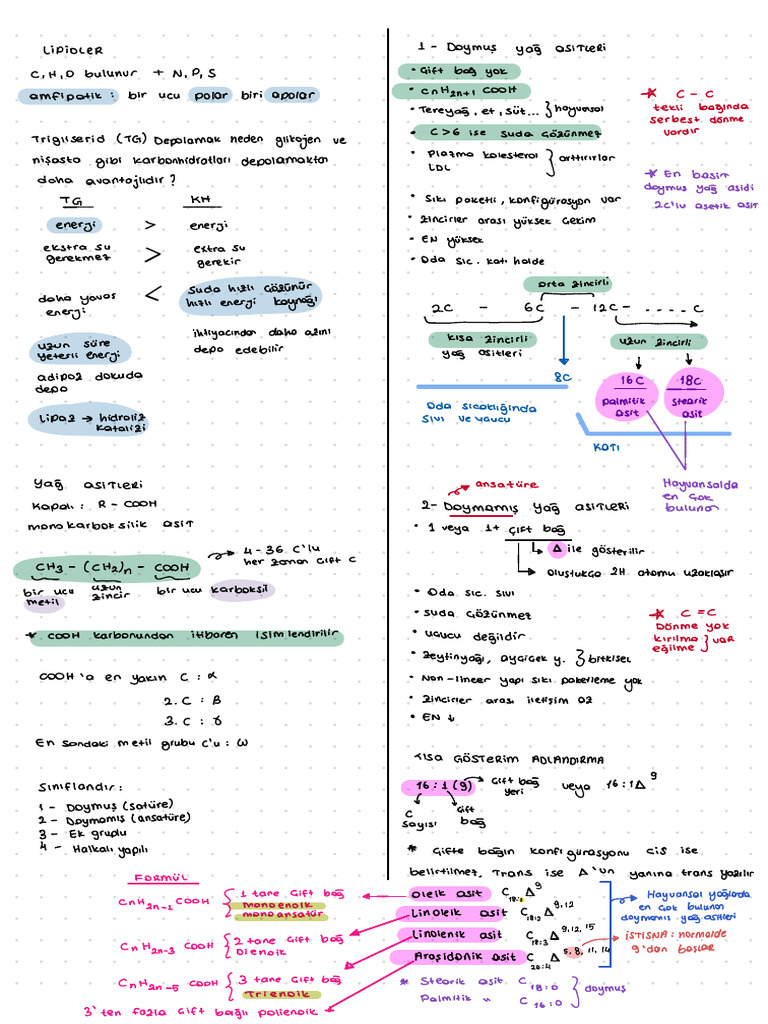 LİPİDLER
C, H, O bulunur + N, P, S
amfipatik : bir ucu polar biri apolar
Trigliserid (TG) Depolamak neden glikojen ve
nişasta gibi karbonhidratları depolamaktan
daha avantajlıdır ?
TG KH
energi > energi
ekstra su gerekmez > extra su gerekir
daha yavaş energi < Suda hızlı çözünür hızlı energi kaynağı
uzun süre yeterli energi
ihtiyacından daha azını depo edebilir
adipoz dokuda depo
lipaz → hidroliz katalizi
YAĞ ASİTLERİ
Kapalı : R - COOH
monokarboksilik asit
CH3 - (CH2)n - COOH → 4 - 36 C'lu her zaman çift C
bir ucu metil uzun zincir bir ucu karboksil
* COOH karbonundan itibaren isimlendirilir
COOH'a en yakın C : α
2. C : β
3. C : γ
En sondaki metil grubu C'u : ω
Sınıflandır :
1 - Doymuş (satüre)
2 - Doymamış (ansatüre)
3 - Ek gruplu
4 - Halkalı yapılı
1 - Doymuş yağ asitleri
• Çift bağ yok
• CnH2n+1 COOH
• Tereyağ, et, süt... } hayvansal
• C>6 ise suda çözünmez
• Plazma kolesterol LDL } arttırırlar
• Sıkı paketli, konfigürasyon var
• Zincirler arası yüksek çekim
• EN yüksek
• Oda sıc. katı halde
* C - C
tekli bağında
serbest dönme
vardır
* En basit
doymuş yağ asidi
2C'lu asetik asit
orta zincirli
2C - 6C - 12C - .... C
kısa zincirli yağ asitleri
uzun zincirli
8C
16C palmitik asit
18C stearik asit
Oda sıcaklığında
sıvı ve uçucu
KATI
Hayvansalda
en çok
bulunan
→ ansatüre
2- Doymamış yağ asitleri
• 1 veya 1+ çift bağ
→ Δ ile gösterilir
→ oluştukça 2H atomu uzaklaşır
• Oda sıc. sıvı
• suda çözünmez
• uçucu değildir
• Zeytinyağı, ayçiçek y. } bitkisel
• Non-lineer yapı sıkı paketleme yok
• Zincirler arası iletişim az
• EN ↓
* C = C
Dönme yok
kırılma eğilme } var
KISA GÖSTERİM ADLANDIRMA
16 : 1 (9) → çift bağ yeri veya 16 : 1 Δ^9
C sayısı çift bağ
* Çifte bağın konfigürasyonu cis ise
belirtilmez, Trans ise Δ'un yanına trans yazılır
FORMÜL
CnH2n-1 COOH { 1 tane çift bağ monoenoik monoansatür
CnH2n-3 COOH { 2 tane çift bağ Dienoik
CnH2n-5 COOH { 3 tane çift bağ Trienoik
3'ten fazla çift bağlı polienoik
oleik asit C18:1 Δ^9
Linoleik asit C18:2 Δ^9,12
Linolenik asit C18:3 Δ^9,12,15
Araşidonik asit C20:4 Δ^5,8,11,14
→ Hayvansal yağlarda
en çok bulunan
doymamış yağ asitleri
→ İSTİSNA : normalde
9'dan başlar
* Stearik asit C18:0
Palmitik " C16:0 } doymuş